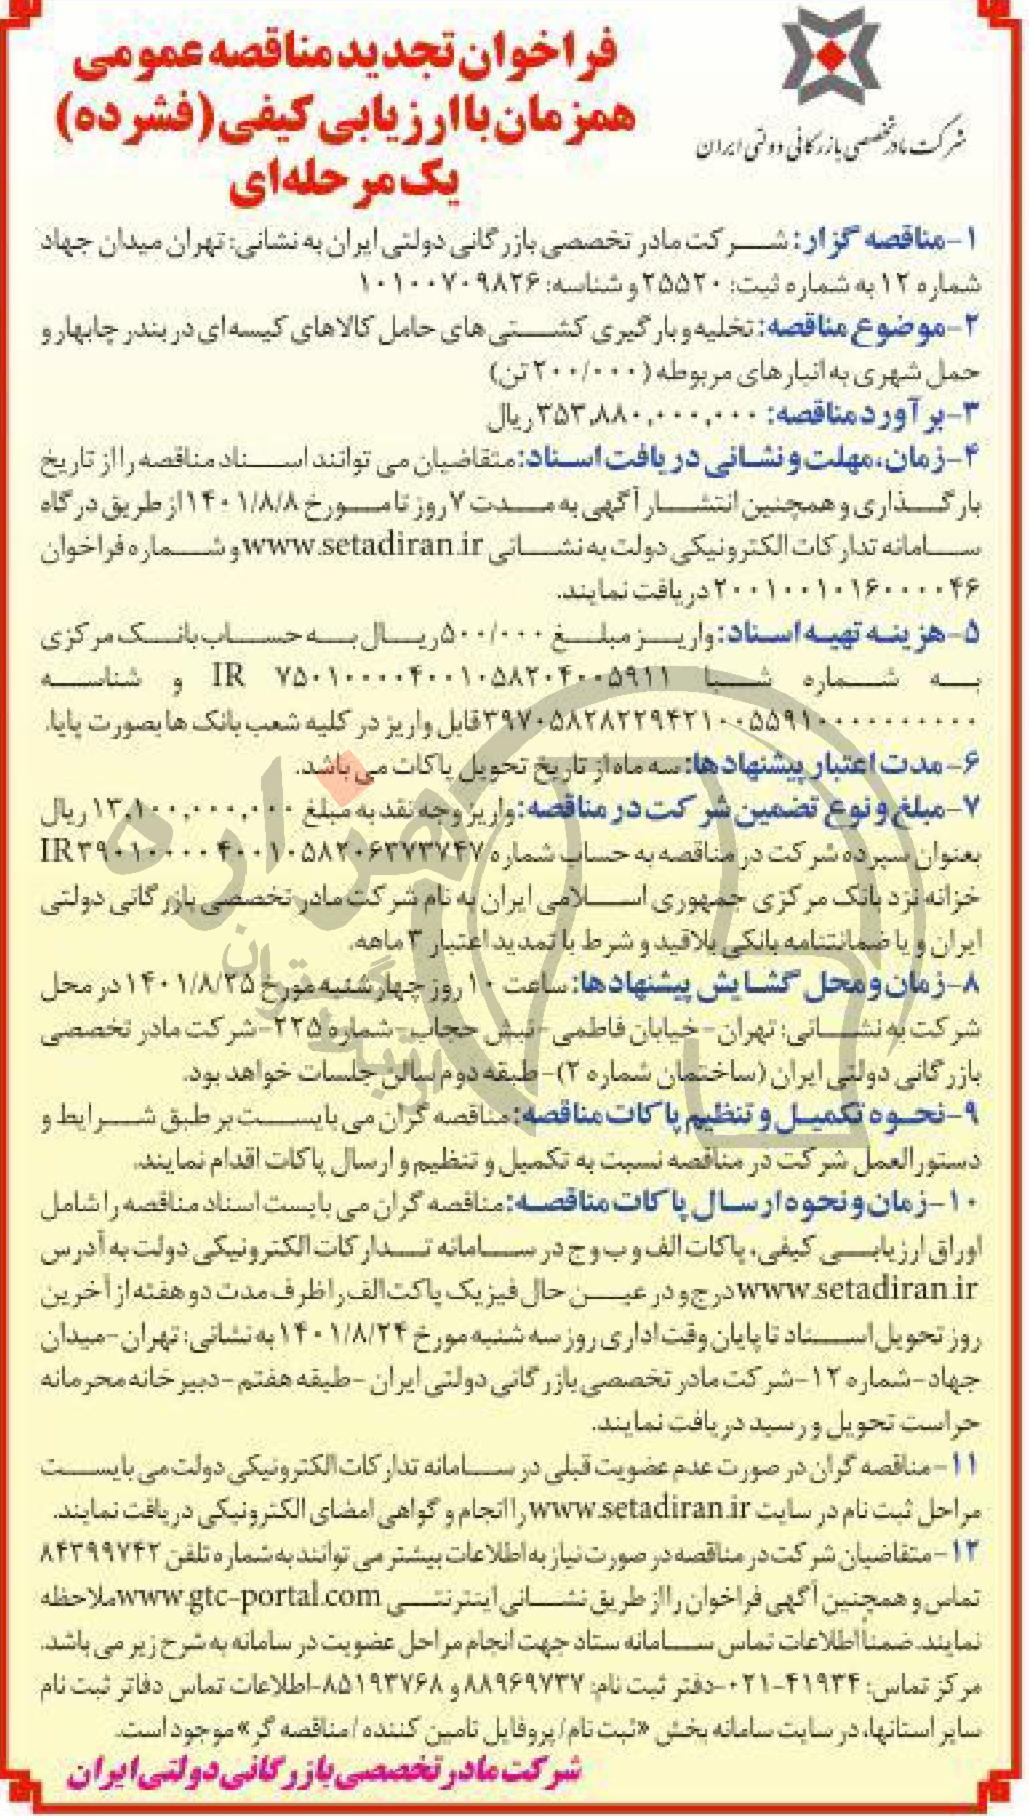 فراخوان تجدید مناقصه عمومی
همزمان با ارزیابی کیفی (فشرده)
یک مرحله‌ای
شرکت مادر تخصصی بازرگانی دولتی ایران
۱-مناقصه گزار: شرکت مادر تخصصی بازرگانی دولتی ایران به نشانی: تهران میدان جهاد
شماره ۱۲ به شماره ثبت: ۲۵۵۲۰ و شناسه: ۱۰۱۰۰۷۰۹۸۲۶
۲-موضوع مناقصه: تخلیه و بارگیری کشتی های حامل کالاهای کیسه ای در بندر چابهار و
حمل شهری به انبارهای مربوطه (۲۰۰/۰۰۰ تن)
۳-برآورد مناقصه: ۳۵۳,۸۸۰,۰۰۰,۰۰۰ ریال
۴-زمان، مهلت و نشانی دریافت اسناد: متقاضیان می توانند اسناد مناقصه را از تاریخ
بارگذاری و همچنین انتشار آگهی به مدت ۷ روز تا مورخ ۱۴۰۱/۸/۸ از طریق درگاه
سامانه تدارکات الکترونیکی دولت به نشانی www.setadiran.ir و شماره فراخوان
۲۰۰۱۰۰۱۰۱۶۰۰۰۰۴۶ دریافت نمایند.
۵-هزینه تهیه اسناد: واریز مبلغ ۵۰۰/۰۰۰ ریال به حساب بانک مرکزی
به شماره شبا IR ۷۵۰۱۰۰۰۰۴۰۰۱۰۵۸۲۰۴۰۰۵۹۱۱ و شناسه
۳۹۷۰۵۸۲۸۲۲۹۴۲۱۰۰۵۵۹۱۰۰۰۰۰۰۰۰۰۰ قابل واریز در کلیه شعب بانک ها بصورت پایا.
۶-مدت اعتبار پیشنهادها: سه ماه از تاریخ تحویل پاکات می باشد.
۷-مبلغ و نوع تضمین شرکت در مناقصه: واریز وجه نقد به مبلغ ۱۳,۱۰۰,۰۰۰,۰۰۰ ریال
بعنوان سپرده شرکت در مناقصه به حساب شماره IR ۳۹۰۱۰۰۰۰۴۰۰۱۰۵۸۲۰۶۳۷۳۷۴۷
خزانه نزد بانک مرکزی جمهوری اسلامی ایران به نام شرکت مادر تخصصی بازرگانی دولتی
ایران و یا ضمانتنامه بانکی بلاقید و شرط با تمدید اعتبار ۳ ماهه.
۸-زمان و محل گشایش پیشنهادها: ساعت ۱۰ روز چهارشنبه مورخ ۱۴۰۱/۸/۲۵ در محل
شرکت به نشانی: تهران- خیابان فاطمی- نبش حجاب- شماره ۲۲۵-شرکت مادر تخصصی
بازرگانی دولتی ایران (ساختمان شماره ۲)- طبقه دوم سالن جلسات خواهد بود.
۹-نحوه تکمیل و تنظیم پاکات مناقصه: مناقصه گران می بایست بر طبق شرایط و
دستورالعمل شرکت در مناقصه نسبت به تکمیل و تنظیم و ارسال پاکات اقدام نمایند.
۱۰-زمان و نحوه ارسال پاکات مناقصه: مناقصه گران می بایست اسناد مناقصه را شامل
اوراق ارزیابی کیفی، پاکات الف و ب و ج در سامانه تدارکات الکترونیکی دولت به آدرس
www.setadiran.ir درج و در عین حال فیزیک پاکت الف را ظرف مدت دو هفته از آخرین
روز تحویل اسناد تا پایان وقت اداری روز سه شنبه مورخ ۱۴۰۱/۸/۲۴ به نشانی: تهران-میدان
جهاد-شماره ۱۲-شرکت مادر تخصصی بازرگانی دولتی ایران -طبقه هفتم -دبیرخانه محرمانه
حراست تحویل و رسید دریافت نمایند.
۱۱-مناقصه گران در صورت عدم عضویت قبلی در سامانه تدارکات الکترونیکی دولت می بایست
مراحل ثبت نام در سایت www.setadiran.ir را انجام و گواهی امضای الکترونیکی دریافت نمایند.
۱۲-متقاضیان شرکت در مناقصه در صورت نیاز به اطلاعات بیشتر می توانند به شماره تلفن ۸۴۳۹۹۷۴۲
تماس و همچنین آگهی فراخوان را از طریق نشانی اینترنتی www.gtc-portal.com ملاحظه
نمایند. ضمناً اطلاعات تماس سامانه ستاد جهت انجام مراحل عضویت در سامانه به شرح زیر می باشد.
مرکز تماس: ۴۱۹۳۴-۰۲۱-دفتر ثبت نام: ۸۸۹۶۹۷۳۷ و ۸۵۱۹۳۷۶۸-اطلاعات تماس دفاتر ثبت نام
سایر استانها، در سایت سامانه بخش «ثبت نام / پروفایل تامین کننده / مناقصه گر» موجود است.
شرکت مادر تخصصی بازرگانی دولتی ایران
هزاره